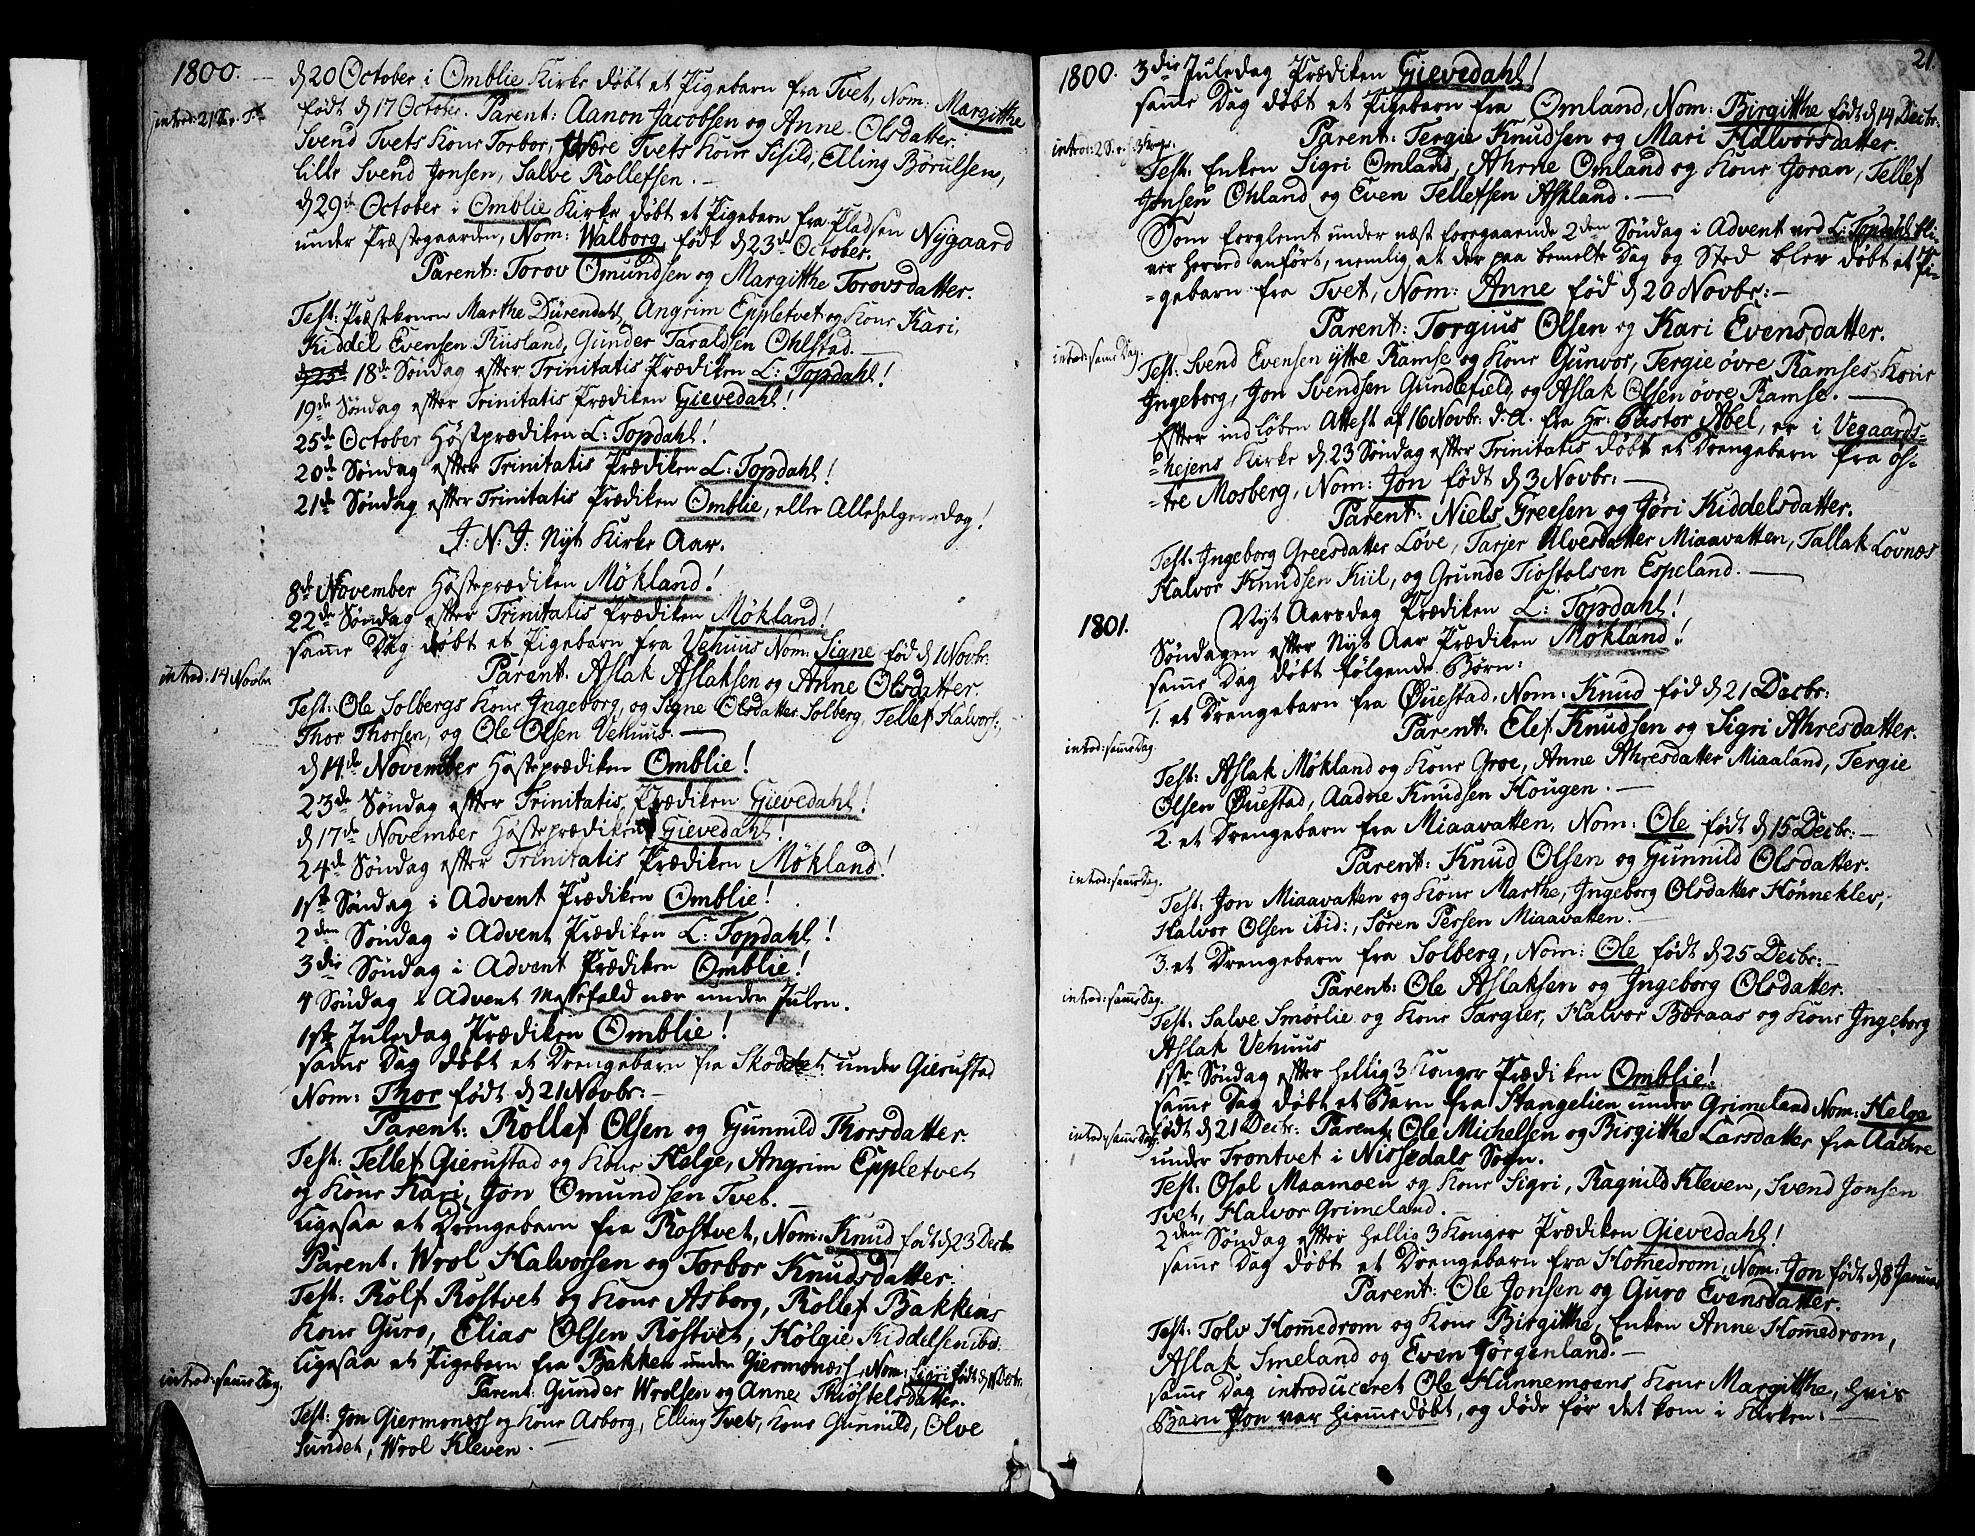 1800. d 20 October i Omblie Kirke døbt et Pigebarn fra Tvet, Nom: Margitthe
født d 17 October. Parent: Aanon Jacobsen og Anne Olsdatter.
Svend Tvets Kone Torbor, Tvets Kone Sisild, Elling Børulsen,
lille Svend Jonsen, Salve Rollefsen.
d 29de October i Omblie Kirke døbt et Pigebarn fra Pladsen Nygaard
under Præstegaarden, Nom: Walborg født d 23de October.
Parent: Torov Omundsen og Margitthe Torovsdatter.
Test: Præstekonen Marthe Dürendahl, Angrim Eppletvet og Kone Kari,
Kiddel Evensen Risland, Gunder Taraldsen Ohlstad.
18de Søndag efter Trinitatis Prædiken L: Topdahl!
19de Søndag efter Trinitatis Prædiken Gievedahl!
25de October Høstprædiken L: Topdahl!
20de Søndag efter Trinitatis Prædiken L: Topdahl!
21de Søndag efter Trinitatis Prædiken Omblie, eller Allehelgensdag!
J: N: J: Nyt Kirke Aar.
8de November Høsteprædiken Møkland!
22de Søndag efter Trinitatis Prædiken Møkland!
samme Dag døbt et Pigebarn fra Vehuus Nom: Signe fød d 1 Novbr:
introd: 14 Novbr
Parent: Aslak Aslaksen og Anne Olsdatter.
Test: Ole Solbergs Kone Ingeborg, og Signe Olsdatter Solberg, Tellef Halvors:,
Thor Thorsen, og Ole Olsen Vehuus.
d 14de November Høsteprædiken Omblie!
23de Søndag efter Trinitatis, Prædiken Gievedahl!
d 17de November Høsteprædiken Gievedahl!
24de Søndag efter Trinitatis Prædiken Møkland!
1ste Søndag i Advent Prædiken Omblie!
2den Søndag i Advent Prædiken L: Topdahl!
3die Søndag i Advent Prædiken Omblie!
4 Søndag i Advent Messefald nær under Julen.
1ste Juledag Prædiken Omblie!
samme Dag døbt et Drengebarn fra under Gierustad
Nom: Thor født d 21 Novbr:
Parent: Rollef Olsen og Gunnild Thorsdatter.
Test: Tellef Gierustad og Kone Helge, Angrim Eppletvet
og Kone Kari, Jon Omundsen Tvet.
Ligesaa et Drengebarn fra Rostvet, Nom: Knud født d 23 Decbr
Parent: Wrol Halvorsen og Torbor Knudsdatter.
Test: Rolf Rostvet og Kone Asborg, Rollef Bakkens
Kone Guro, Elias Olsen Rostvet, Hølgie Kiddelsen ibid:
Ligesaa et Pigebarn fra Bakken under Giermonæs, Nom: Sigri født d Decbr:
introd: samme Dag.
Parent: Gunder Wrolsen og Anne Thiøstelsdatter.
Test: Jon Giermonæs og Kone Asborg, Elling Tvets, Kone Gunnild, Olve
Sundet, Wrol Kleven.
21.
1800. 3die Juledag Prædiken Gievedahl!
samme Dag døbt et Pigebarn fra Omland, Nom: Birgitthe født d 14 Decbr:
Parent: Tergie Knudsen og Mari Halvorsdatter.
Test: Enken Sigri Omland, Ahrne Omland og Kone Joran, Tellef
Jonsen Ohland og Even Tellefsen Askland.
Som forglemt under næst foregaaende 2den Søndag i Advent ved L: Topdahl bli-
ver herved anført, nemlig at der paa bemelte Dag og Sted blev døbt et Pi-
gebarn fra Tvet, Nom: Anne fød d 20 Novbr:
Parent: Torgius Olsen og Kari Evensdatter.
introd: samme Dag.
Test: Svend Evensen yttre Ramse og Kone Gunvor, Tergie øvre Ramses Kone
Ingeborg, Jon Svendsen Gundlefield og Aslak Olsen øvre Ramse.
Efter indløben Attest af 16 Novbr: d.A. fra Hr: Pastor Abel, er i Vegaards-
hejens Kirke d. 23 Søndag efter Trinitatis døbt et Drengebarn fra øs-
tre Mosberg, Nom: Jon født d 3 Novbr:
Parent: Niels Greesen og Jøri Kiddelsdatter.
Test: Ingeborg Greesdatter Løve, Tarjer Alvesdatter Miaavatten, Tallak Lovnæs
Halvor Knudsen Kiil, og Grunde Tiostolsen Espeland.
1801. Nyt Aarsdag Prædiken L: Topdahl!
Søndagen efter Nyt Aar Prædiken Møkland!
samme Dag døbt følgende Børn:
1. et Drengebarn fra Øuestad, Nom: Knud fød d 21 Decbr:
Parent: Elef Knudsen og Sigri Ahresdatter.
introd: samme Dag
Test: Aslak Møkland og Kone Groe, Anne Ahresdatter Miaaland, Tergie
Olsen Øuestad, Aadne Knudsen Hougen.
2. et Drengebarn fra Miaavatten, Nom: Ole født d 15 Decbr:
Parent: Knud Olsen og Gunnild Olsdatter.
introd: samme Dag.
Test: Jon Miaavatten og Kone Marthe, Ingeborg Olsdatter Hønneklev,
Halvor Olsen ibid:, Søren Persen Miaavatten.
3. et Drengebarn fra Solberg, Nom: Ole født d 25 Decbr:
Parent: Ole Aslaksen og Ingeborg Olsdatter.
introd: samme Dag.
Test: Salve Smørlie og Kone Targier, Halvor Beraas og Kone Ingeborg
Aslak Vehuus
1ste Søndag efter hellig 3 Konger Prædiken Omblie!
samme Dag døbt et Barn fra Stangelien under Grimeland Nom: Helge
introd: samme Dag.
født d 21 Decbr: Parent: Ole Michelsen og Birgitthe Larsdatter fra
under Trontvet i Nissedals Sogn.
Test: Osol Maamoen og Kone Sigri, Ragnild Kleven, Svend Jonsen
Tvet, Halvor Grimeland.
2den Søndag efter hellig 3 Konger Prædiken Gievedahl!
samme Dag døbt et Drengebarn fra Homedrom, Nom: Jon født d 8 Januar
Parent: Ole Jonsen og Guro Evensdatter.
Test: Tolv Homedrom og Kone Birgitthe, Enken Anne Homedrom,
Aslak Smeland og Even Jørgenland.
samme Dag introduceret Ole Hunnemoens Kone Margitthe, hvis
Barn Jon var hiemmedøbt, og døde før det kom i Kirken.